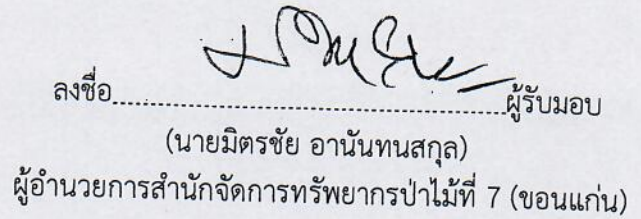 ลงชื่อ........................................................ผู้รับมอบ
(นายมิตรชัย อานันทนสกุล)
ผู้อำนวยการสำนักจัดการทรัพยากรป่าไม้ที่ 7 (ขอนแก่น)